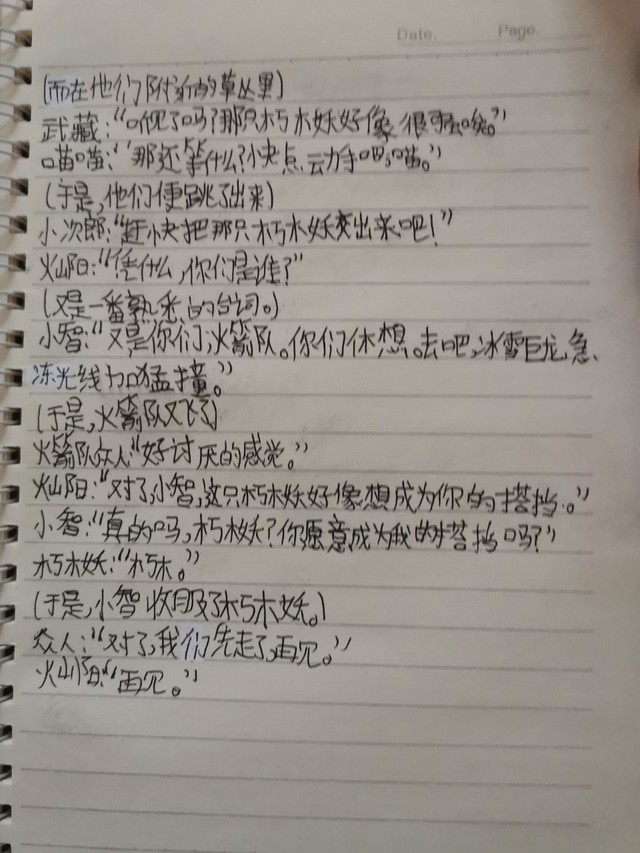 Date. Page.
(而在他们附近的草丛里)
武藏:“听见了吗?那只朽木妖好像很可爱唉。”
喵喵:“那还等什么?快点动手吧喵。”
(于是,他们便跳了出来)
小次郎:“赶快把那只朽木妖交出来吧!”
灿阳:“凭什么,你们是谁?”
(又是一番熟悉的台词。)
小智:“又是你们,火箭队。你们休想。去吧,冰雪巨龙,急
冻光线加猛撞。”
(于是,火箭队又飞了)
火箭队众人“好讨厌的感觉。”
灿阳:“对了,小智,这只朽木妖好像想成为你的搭挡。”
小智:“真的吗,朽木妖?你愿意成为我的搭挡吗?”
朽木妖:“朽木。”
(于是,小智收服了朽木妖。)
众人:“对了,我们先走了,再见。”
灿阳:“再见。”